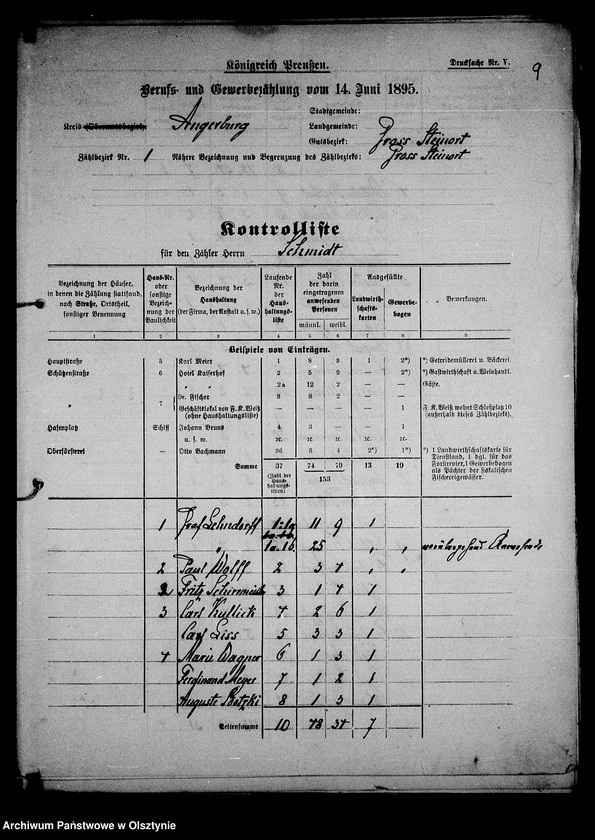 Königreich Preußen.
Drucksache Nr. V.
9
Berufs- und Gewerbezählung vom 14. Juni 1895.
Kreis (Oberamtsbezirk): Angerburg
Stadtgemeinde:
Landgemeinde:
Gutsbezirk: Gross Steinort
Zählbezirk Nr. 1 Nähere Bezeichnung und Begrenzung des Zählbezirks: Gross Steinort
Kontrolliste
für den Zähler Herrn Schmidt
Bezeichnung der Häuser, in denen die Zählung stattfand, nach Straße, Ortstheil, sonstiger Benennung
Haus-Nr. oder sonstige Bezeichnung der Baulichkeit
Bezeichnung der Haushaltung (der Firma, der Anstalt u. s. w.)
Laufende Nr. der Haushaltungsliste
Zahl der darin eingetragenen anwesenden Personen
männl. weibl.
Ausgefüllte
Landwirthschaftskarten
Gewerbebogen
Bemerkungen.
1 2 3 4 5 6 7 8 9
Beispiele von Einträgen.
Hauptstraße 5 Karl Meier 1 8 3 1 2*) *) Getreidemüllerei u. Bäckerei.
Schützenstraße 6 Hotel Kaiserhof 2 5 9 — 2*) *) Gastwirthschaft u. Weinhandl.
" " 2a 12 2 — — Gäste.
" 7 Dr. Fischer 3 3 2 — —
Geschäftslokal von F. K. Weiß (ohne Haushaltungsliste) — — — — 1 F. K. Weiß wohnt Schloßplatz 10 (außerhalb dieses Zählbezirks).
Hafenplatz Schiff Johann Bruns 4 3 — — 1
u. s. w. ꝛc. ꝛc. ꝛc. ꝛc. ꝛc.
Oberförsterei — Otto Bachmann 36 3 4 2*) 1*) *) 1 Landwirthschaftskarte für Dienstland, 1 dgl. für das Forstrevier, 1 Gewerbebogen als Pächter der fiskalischen Fischereigewässer.
Summe 37 74 79 13 19
(Zahl der Haushaltungslisten) 153
1 Graf Lehndorff 11 9 1
" 1a. 1b. 25 , , vorübergehend Anwesende
2 Paul Wolff 2 3 4 , ,
2 Fritz Schirrmeister 3 1 4 1
3 Carl Kullick 4 2 6 1
Carl Liss 5 3 3 1
4 Marie Wagner 6 1 3 1
Ferdinand Meyer 7 1 2 1
Auguste 8 1 3 1
Seitensumme 10 48 34 7
Archiwum Państwowe w Olsztynie